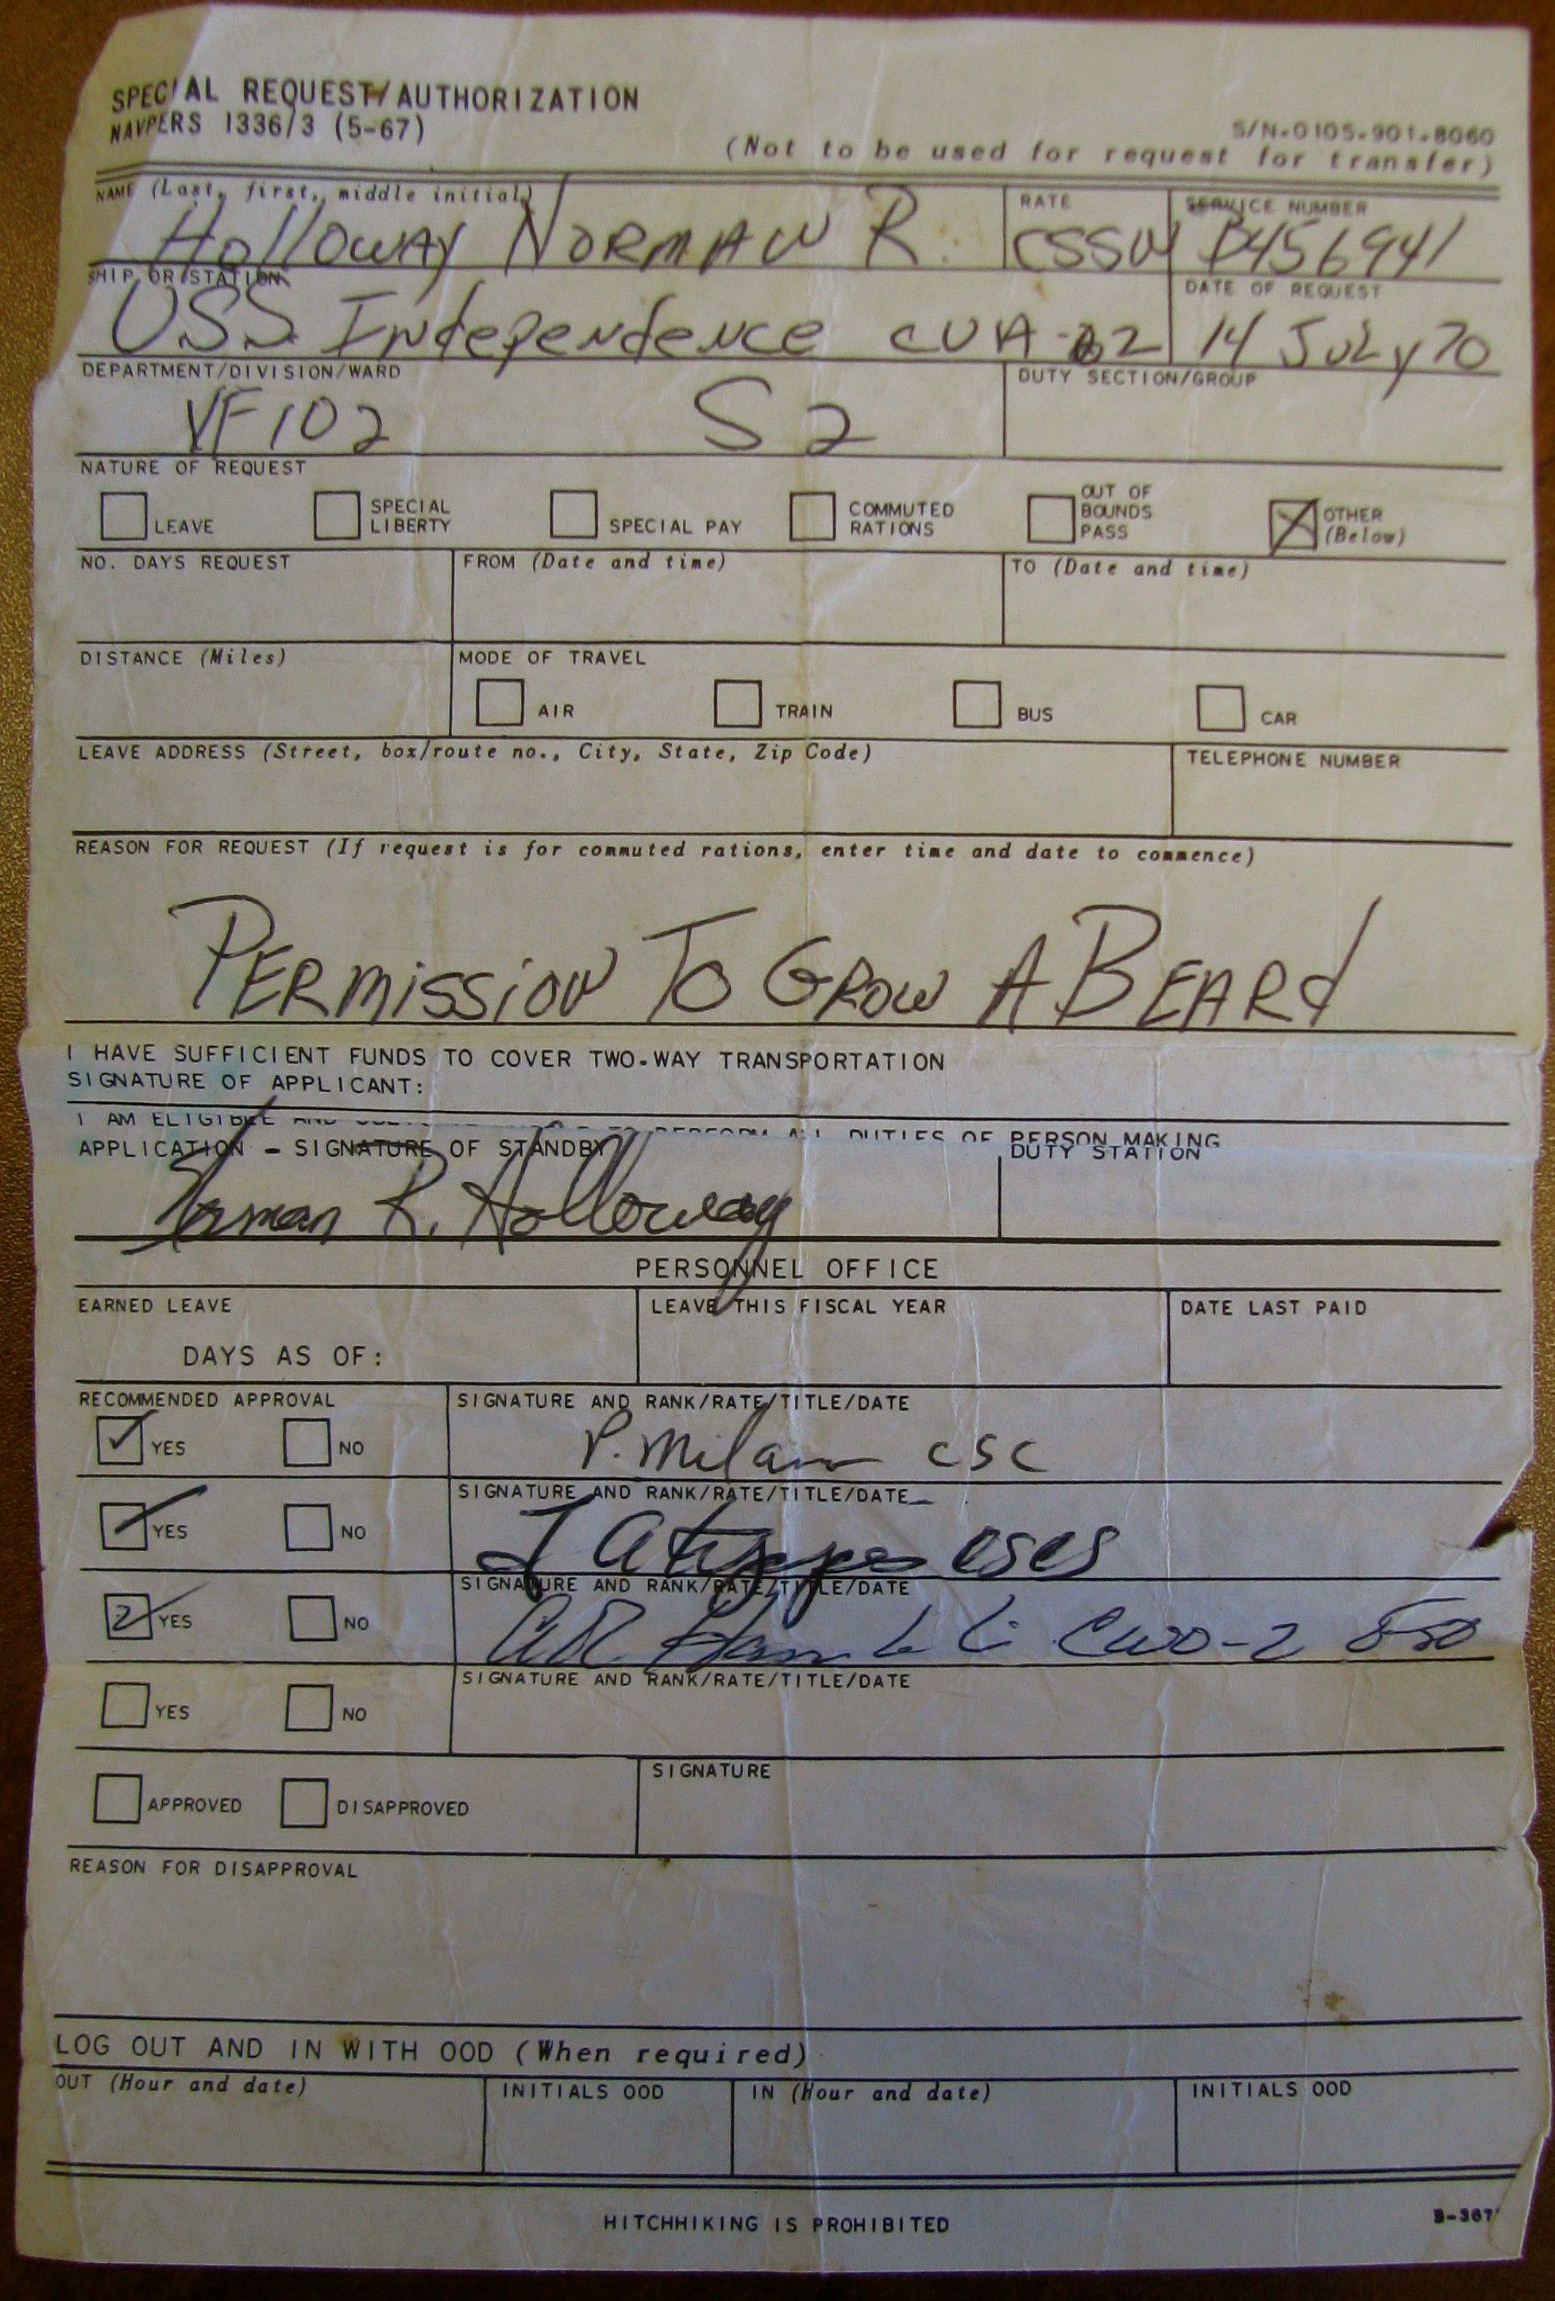 SPECIAL REQUEST/AUTHORIZATION
NAVPERS 1336/3 (5-67)
S/N-0105-901-8060
(Not to be used for request for transfer)
NAME (Last, first, middle initial) RATE SERVICE NUMBER
Holloway Norman R. CSSN B456941
SHIP OR STATION DATE OF REQUEST
USS Independence CVA-62 14 July 70
DEPARTMENT/DIVISION/WARD DUTY SECTION/GROUP
VF102 S2
NATURE OF REQUEST
LEAVE SPECIAL LIBERTY SPECIAL PAY COMMUTED RATIONS OUT OF BOUNDS PASS OTHER (Below)
NO. DAYS REQUEST FROM (Date and time) TO (Date and time)
DISTANCE (Miles) MODE OF TRAVEL
AIR TRAIN BUS CAR
LEAVE ADDRESS (Street, box/route no., City, State, Zip Code) TELEPHONE NUMBER
REASON FOR REQUEST (If request is for commuted rations, enter time and date to commence)
PERMISSION TO GROW A BEARd
I HAVE SUFFICIENT FUNDS TO COVER TWO-WAY TRANSPORTATION
SIGNATURE OF APPLICANT:
I AM ELIGIBLE AND TO PERFORM ALL DUTIES OF PERSON MAKING
APPLICATION - SIGNATURE OF STANDBY DUTY STATION
Norman R. Holloway
PERSONNEL OFFICE
EARNED LEAVE LEAVE THIS FISCAL YEAR DATE LAST PAID
DAYS AS OF:
RECOMMENDED APPROVAL SIGNATURE AND RANK/RATE/TITLE/DATE
YES NO P. Milam CSC
SIGNATURE AND RANK/RATE/TITLE/DATE
YES NO CSCS
SIGNATURE AND RANK/RATE/TITLE/DATE
YES NO CWO-2
SIGNATURE AND RANK/RATE/TITLE/DATE
YES NO
APPROVED DISAPPROVED SIGNATURE
REASON FOR DISAPPROVAL
LOG OUT AND IN WITH OOD (When required)
OUT (Hour and date) INITIALS OOD IN (Hour and date) INITIALS OOD
HITCHHIKING IS PROHIBITED